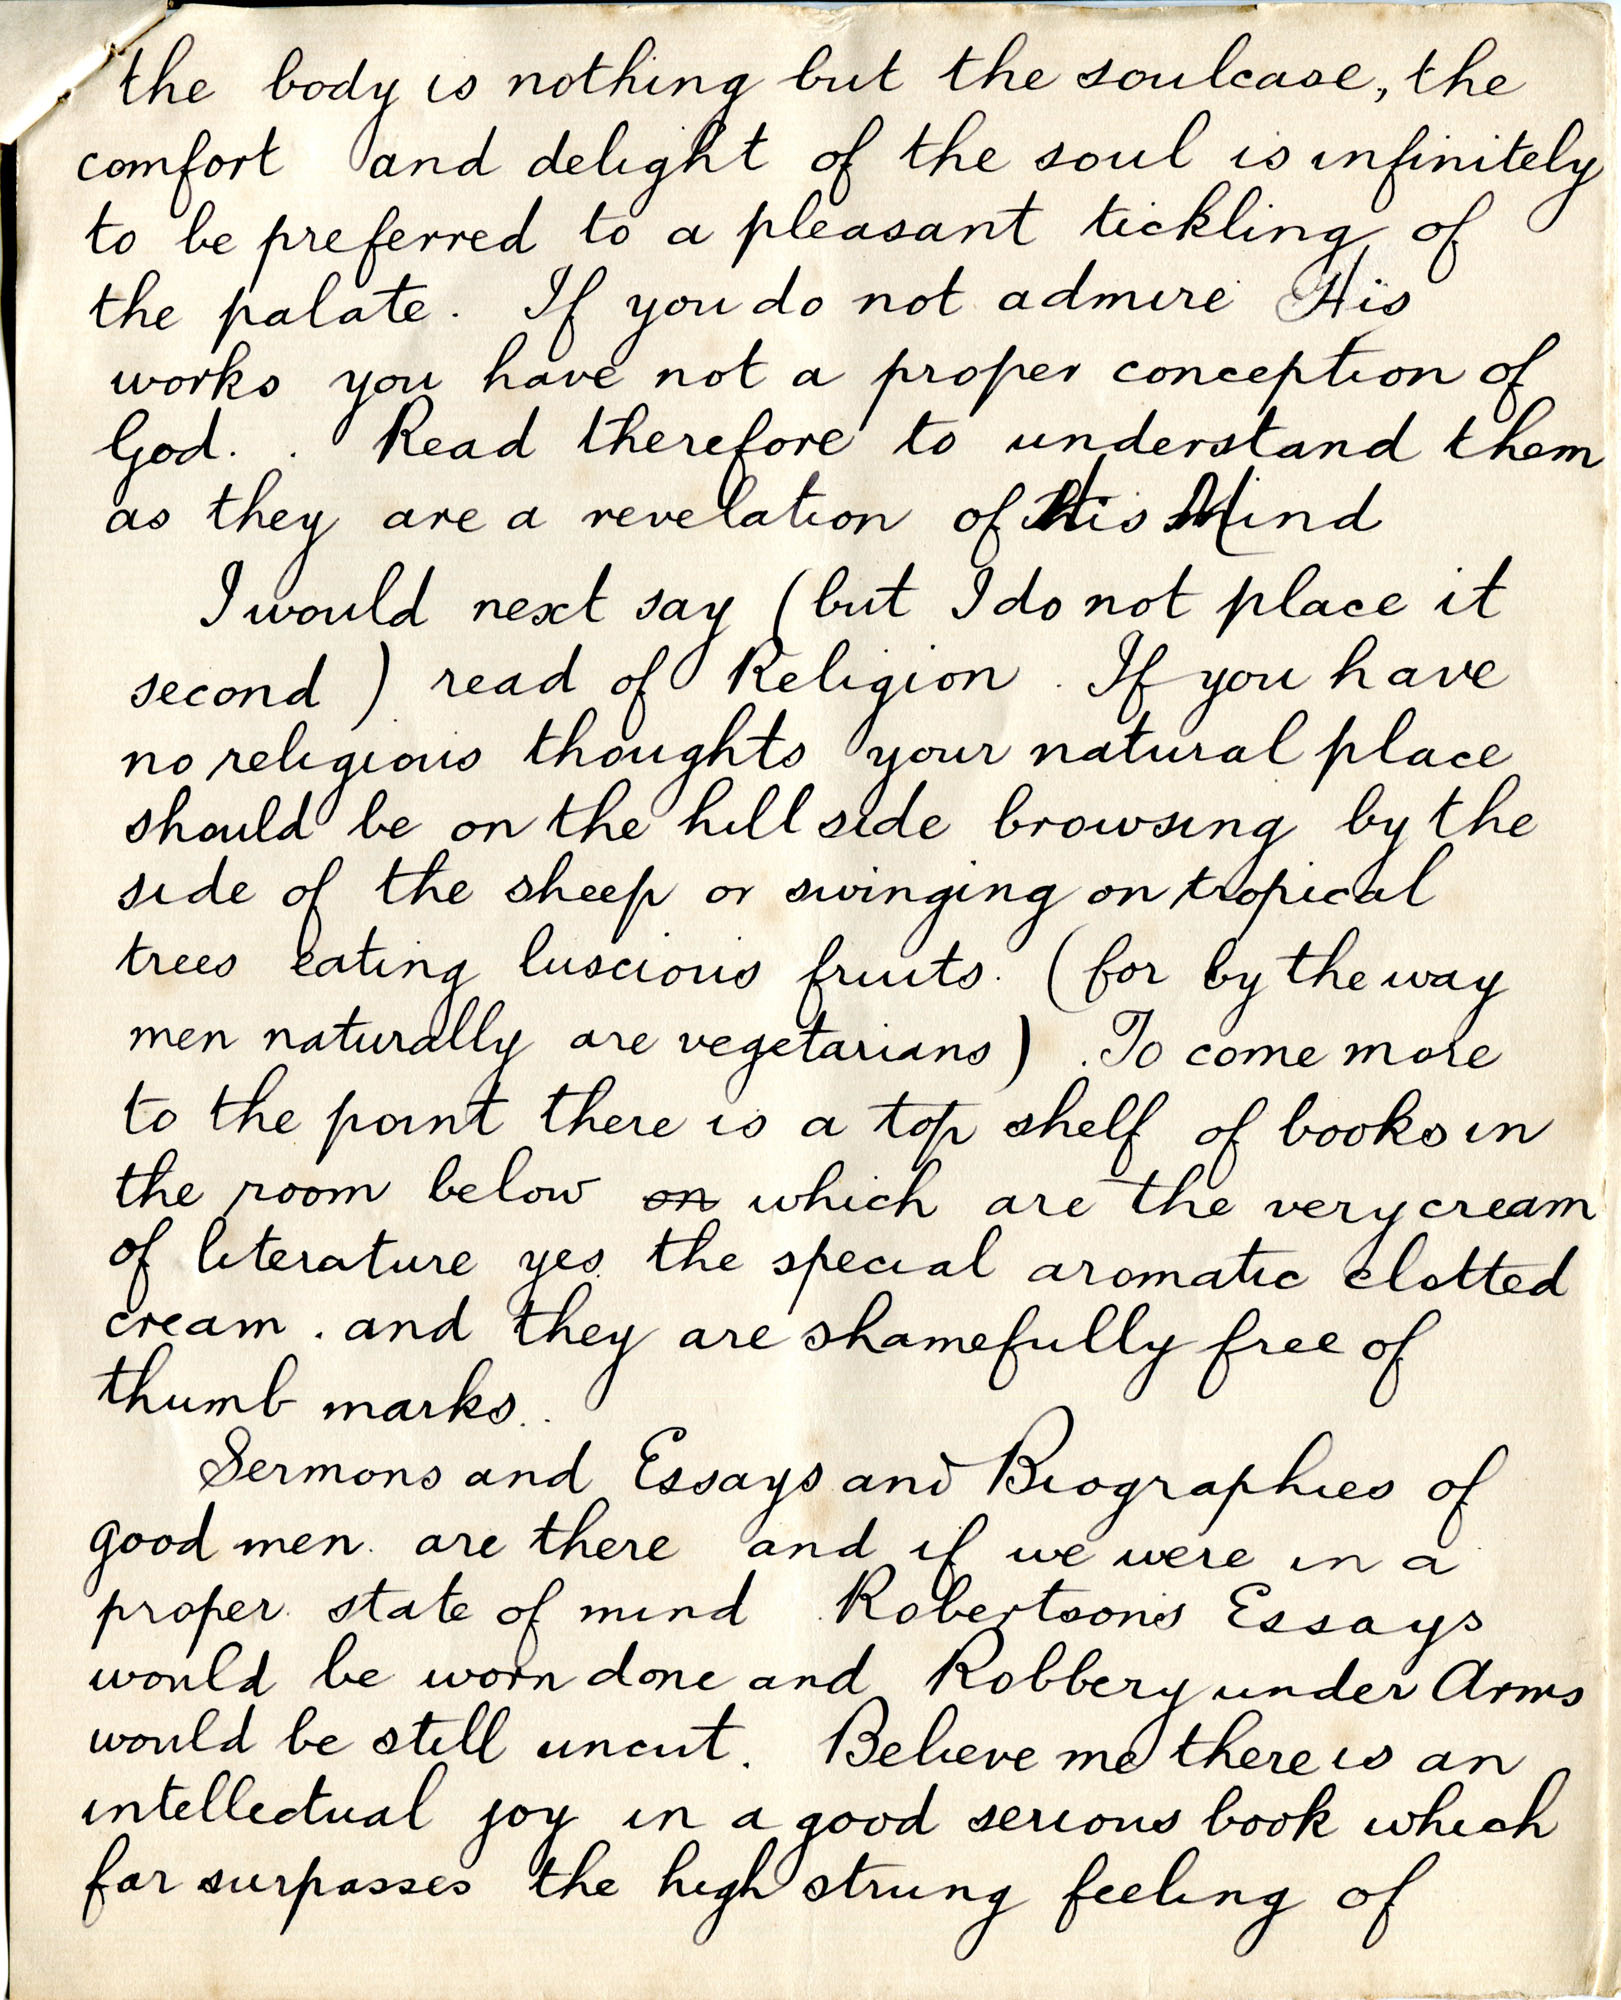 the body is nothing but the soulcase, the
comfort and delight of the soul is infinitely
to be preferred to a pleasant tickling of
the palate. If you do not admire His
works you have not a proper conception of
God. . Read therefore to understand them
as they are a revelation of His Mind
I would next say (but I do not place it
second) read of Religion. If you have
no religious thoughts your natural place
should be on the hill side browsing by the
side of the sheep or swinging on tropical
trees eating luscious fruits. (for by the way
men naturally are vegetarians). To come more
to the point there is a top shelf of books in
the room below on which are the very cream
of literature yes the special aromatic clotted
cream. and they are shamefully free of
thumb marks..
Sermons and Essays and Biographies of
good men. are there and if we were in a
proper state of mind Robertsons Essays
would be worn done and Robbery under Arms
would be still uncut. Believe me there is an
intellectual joy in a good serious book which
far surpasses the high strung feeling of